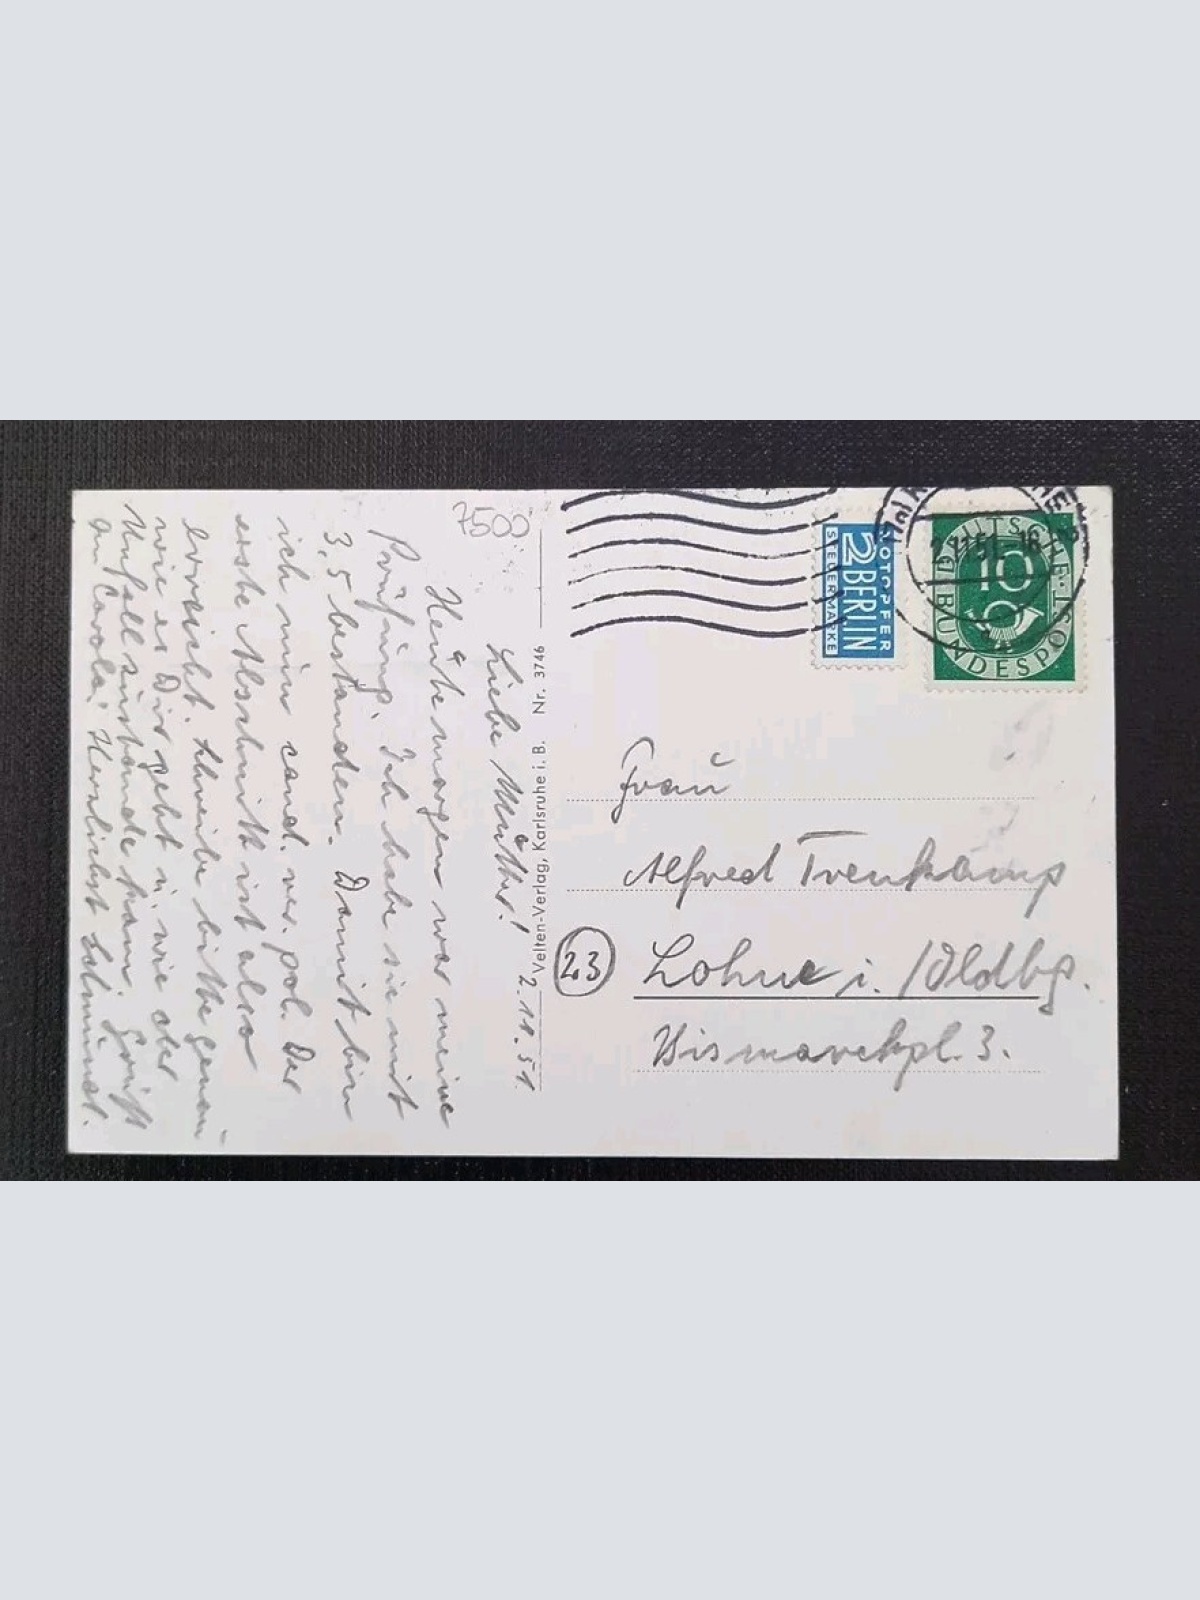 7500
2.11.51.
Liebe Mutter!
Heute morgen war meine
Prüfung. Ich habe sie mit
3,5 bestanden. Damit bin
ich nun cand. rer. pol. Der
erste Abschnitt ist also
erreicht. Schreibe bitte genau
wie es Dir geht u. wie der
Unfall zustande kam. Gruß
an Carola. Herzlichst
Velten-Verlag, Karlsruhe i. B. Nr. 3746
NOTOPFER
2 BERLIN
STEUERMARKE
2.11.51.-16
DEUTSCHE BUNDESPOST
10
Frau
Alfred Trenkamp
23
Lohne i. /Oldbg.
Bismarckpl. 3.